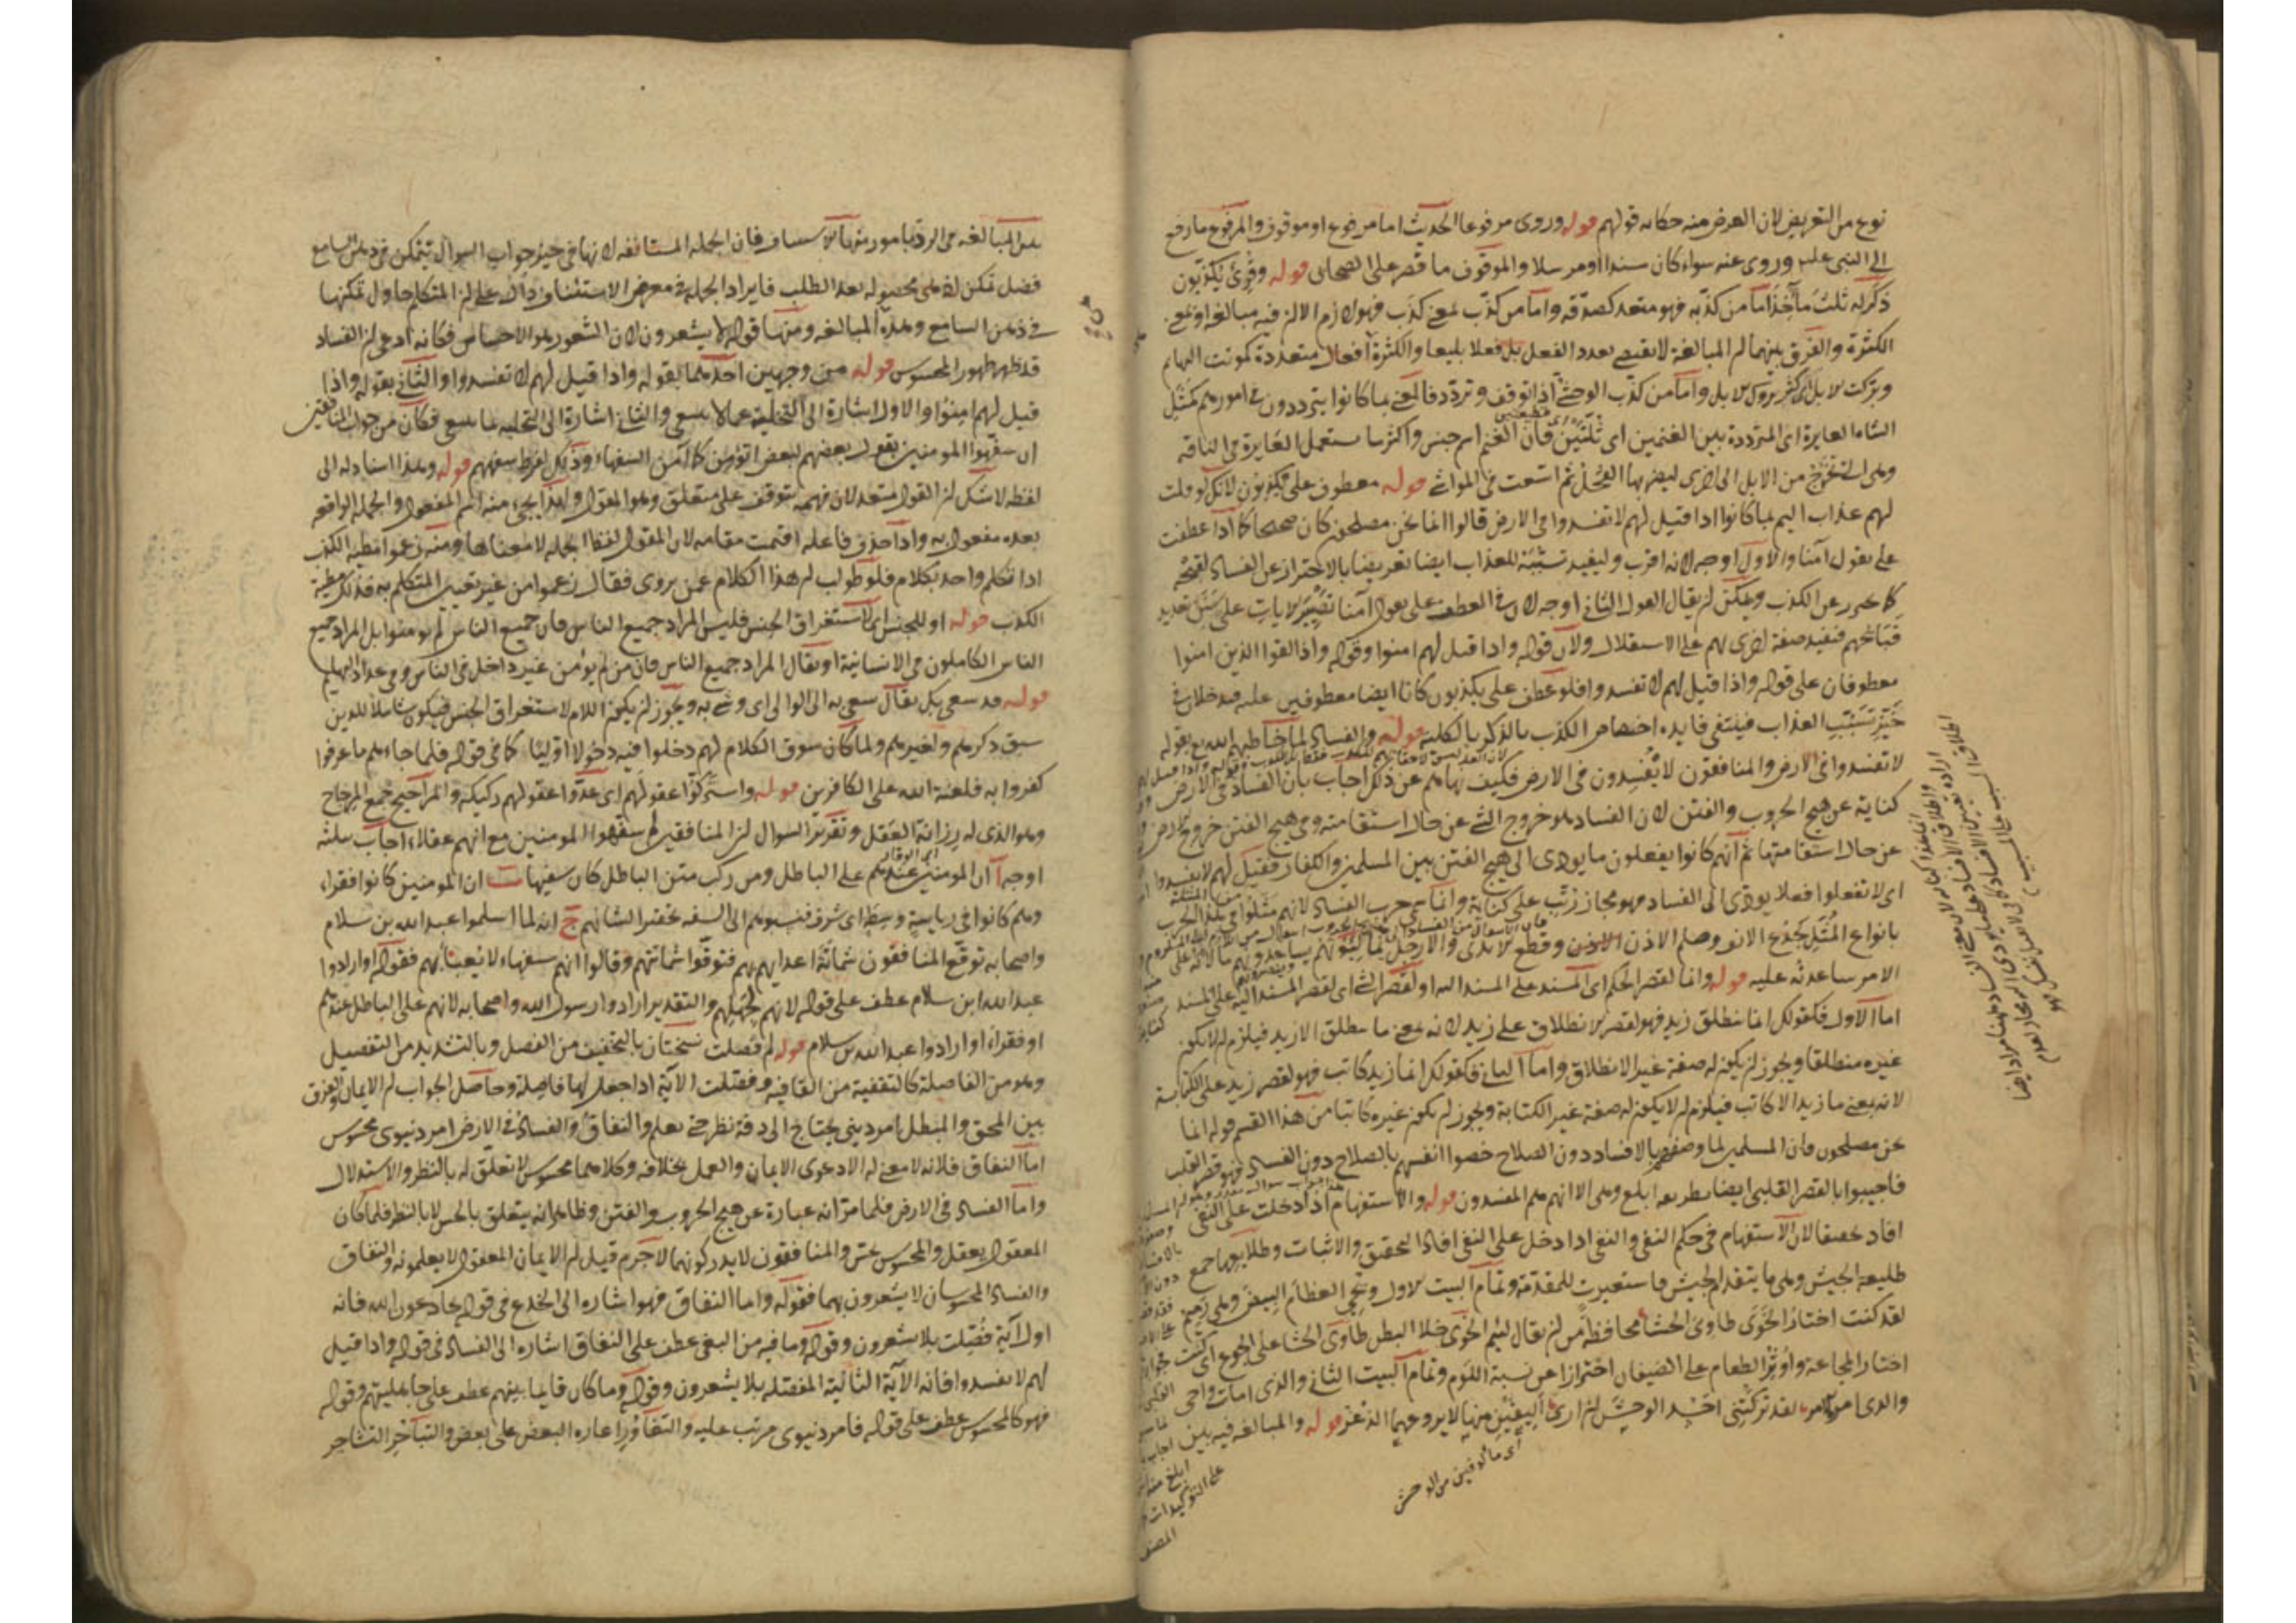 نوع من التعريض لان الغرض منه حكاية قولهم قوله وروى مرفوعا الحديث اما مرفوع او موقوف والمرفوع ما رفع
الى النبى عليه وروى عنه سواء كان مسندا او مرسلا والموقوف ما قصر على الصحابى قوله وقرئ يكذبون
ذكر له ثلث مآخذ اما من كذّبه فهو متعد كصدّقه واما من كذّب بمعنى كذب فهو لازم الا ان فيه مبالغة او بمعنى
الكثرة والفرق بينهما ان المبالغة لا تقتضى تعدد الفعل بل فعلا بليغا والكثرة افعال متعددة كموتت البهائم
وبركت الابل اى كثر بروك الابل واما من كذّب الوحشى اذا توقف وتردد فالمعنى بما كانوا يترددون فى امورهم كمثل
الشاة العايرة اى المترددة بين الغنمين اى ثلتين فان الغنم اسم جنس واكثر ما يستعمل العايرة فى الناقة
وهى التى تخرج من الابل الى اخرى ليضربها الفحل ثم اتسعت فى المواشى قوله معطوف على يكذبون لانك لو قلت
لهم عذاب اليم بما كانوا اذا قيل لهم لا تفسدوا فى الارض قالوا انما نحن مصلحون كان صحيحا كما اذا عطفت
على يقول آمنا والاول اوجه لانه اقرب وليفيد تسببه للعذاب ايضا تعريضا بالاحتراز عن الفساد لقبحه
كما يحترز عن الكذب ويمكن ان يقال القول الثانى اوجه لان فى العطف على يقول آمنا تصيير الايات على سنن تعديد
قبائحهم فتفيد صفة اخرى لهم على الاستقلال ولان قوله واذا قيل لهم امنوا وقوله واذا لقوا الذين امنوا
معطوفان على قوله واذا قيل لهم لا تفسدوا فلو عطف على يكذبون كانا ايضا معطوفين عليه فيدخلان فى
حيز تسبب العذاب فينتفى فايدة اختصاص الكذب بالذكر بالكلية قوله والفساد لما خاطبهم الله بقوله
لا تفسدوا فى الارض والمنافقون لا يفسدون فى الارض فكيف نهاهم عن ذلك اجاب بان الفساد فى الارض
كناية عن هيج الحروب والفتن لان الفساد هو خروج الشئ عن حال استقامته وفى هيج الفتن خروج الارض
عن حال استقامتها ثم انهم كانوا يفعلون ما يودى الى هيج الفتن بين المسلمين والكفار فقيل لهم لا تفسدوا
اى لا تفعلوا فعلا يودى الى الفساد فهو مجاز رتب على كناية وانما سمى حرب الفساد لانهم مثلوا فى هذا الحرب
بانواع المثل بجذع الانف وصلم الاذن وقطع الايدى والارجل
الامر ساعدته عليه قوله وانما لقصر الحكم اى المسند على المسند اليه او لقصر الشئ اى لقصر المسند اليه على المسند
اما الاول فكقولك انما ينطلق زيد فهو لقصر الانطلاق على زيد لانه بمعنى ما ينطلق الا زيد فيلزم ان لا يكون
غيره منطلقا ويجوز ان يكون له صفة غير الانطلاق واما الثانى فكقولك انما زيد كاتب فهو لقصر زيد على الكتابة
لانه بمعنى ما زيد الا كاتب فيلزم ان لا يكون له صفة غير الكتابة ويجوز ان يكون غيره كاتبا من هذا القسم قوله انما
نحن مصلحون فان المسلمين لما وصفوهم بالافساد دون الصلاح خصوا انفسهم بالصلاح دون الفساد فهو قصر القلب
فاجيبوا بالقصر القلبى ايضا بطريقة ابلغ وهى الا انهم هم المفسدون قوله والاستفهام اذا دخلت على النفى
افاد تحقيقا لان الاستفهام فى حكم النفى والنفى اذا دخل على النفى افاد التحقيق والاثبات وطلايعها جمع
طليعة الجيش وهى ما يتقدم الجيش فاستعيرت للمقدمة وتمام البيت الاول ويحيى العظام البيض وهى رميم
لقد كنت اختار الخوى طاوى الحشا محافظة من ان يقال لئيم الخوى خلاء البطن طاوى الحشا على الجوع اى كنت
اختار المجاعة واوثر الطعام على الضيفان احترازا عن نسبة اللوم وتمام البيت الثانى والذى امات واحيى
والذى امره الامر لقد تركتنى احسد الوحش ان ارى اليفين منها لا يروعهما الذعر قوله والمبالغة فيه بين
اى مألوفين من الوحش
على التوكيدات
المصنف
هذه المبالغة فى الرد بامور منها الاستيناف فان الجملة المستانفة لانها فى حيز جواب السوال يتمكن فى ذهن السامع
فضل تمكن لانه هى محصولة بعد الطلب فايراد الجملة فى معرض الاستئناف دال على ان المتكلم حاول تمكنها
فى ذهن السامع وهذه المبالغة ومنها قوله لا يشعرون لان الشعور هو الاحساس فكانه ادعى ان الفساد
قد ظهر ظهور المحسوس قوله من وجهين احدهما بقوله واذا قيل لهم لا تفسدوا والثانى بقوله واذا
قيل لهم امنوا والاول اشارة الى التخلية عما لا ينبغى والثانى اشارة الى التحلية بما ينبغى فكان من جواب المنافقين
ان سفهوا المومنين بقول بعضهم لبعض انؤمن كما آمن السفهاء وذلك لفرط سفههم قوله وهذا اسناد له الى
لفظه لا شك ان القول متعد لان فهمه يتوقف على متعلق وهو المقول ولهذا يجئ منه اسم المفعول والجملة الواقعة
بعده مفعول به واذا حذف فاعله اقيمت مقامه لان المقول لفظ الجملة لا معناها ومنه زعموا مطية الكذب
اذا تكلم واحد بكلام فلو طولب ان هذا الكلام عمن يروى فقال زعموا من غير تعيين المتكلم به فذلك مطية
الكذب قوله او للجنس اى لاستغراق الجنس فليس المراد جميع الناس فان جميع الناس لم يومنوا بل المراد جميع
الناس الكاملون فى الانسانية او يقال المراد جميع الناس فان من لم يؤمن غير داخل فى الناس وفى عداد البهايم
قوله قد سعى بك يقال سعى به الى الوالى اى وشى به ويجوز ان يكون اللام لاستغراق الجنس فيكون شاملا للذين
سبق ذكرهم ولغيرهم ولما كان سوق الكلام لهم دخلوا فيه دخولا اوليا كما فى قوله فلما جاءهم ما عرفوا
كفروا به فلعنة الله على الكافرين قوله واستركّوا عقولهم اى عدّوا عقولهم ركيكة والمراجيح جمع المرجاح
وهو الذى له رزانة العقل وتقرير السوال ان المنافقين لم سفهوا المومنين مع انهم عقلاء اجاب بثلثة
اوجه آ ان المومنين عندهم على الباطل ومن ركب متن الباطل كان سفيها ب ان المومنين كانوا فقراء
وهم كانوا فى رياسة وسطة اى شرف فنسبوهم الى السفه تحقيرا لشانهم ج انه لما اسلموا عبد الله بن سلام
واصحابه توقع المنافقون شماتة اعدايهم بهم فتوقوا شماتتهم وقالوا انهم سفهاء لا يعبأ بهم فقوله او ارادوا
عبد الله ابن سلام عطف على قوله لانهم لجهلهم والتقدير ارادوا رسول الله واصحابه لانهم على الباطل عندهم
او فقراء او ارادوا عبد الله بن سلام قوله لم فصلت نسختان بالتخفيف من الفصل وبالتشديد من التفصيل
وهو من الفاصلة كالتقفية من القافية وفصلت الآية اذا جعل لها فاصلة وحاصل الجواب ان الايمان والفرق
بين المحق والمبطل امر دينى يحتاج الى دقة نظر حتى يعلم والنفاق والفساد فى الارض امر دنيوى محسوس
اما النفاق فلانه لا معنى له الا دعوى الايمان والعمل بخلافه وكلاهما محسوس لا تعلق له بالنظر والاستدلال
واما الفساد فى الارض فلما مر انه عبارة عن هيج الحروب والفتن وظاهر انه يتعلق بالحس لا بالنظر فلما كان
المعقول يعقل والمحسوس يحس والمنافقون لا يدركونهما لا جرم قيل ان الايمان المعقول لا يعلمونه والنفاق
والفساد المحسوسان لا يشعرون بهما فقوله واما النفاق فهو اشارة الى الخدع فى قوله يخادعون الله فانه
اول آية فصّلت بلا يشعرون وقوله وما فيه من البغى عطف على النفاق اشارة الى الفساد فى قوله واذا قيل
لهم لا تفسدوا فانه الآية الثانية المفصلة بلا يشعرون وقوله وما كان قايما بينهم عطف على جاهليتهم وقوله
فهو كالمحسوس عطف على قوله فامر دنيوى مرتب عليه والتغاور اغارة البعض على بعض والتناحر التشاجر